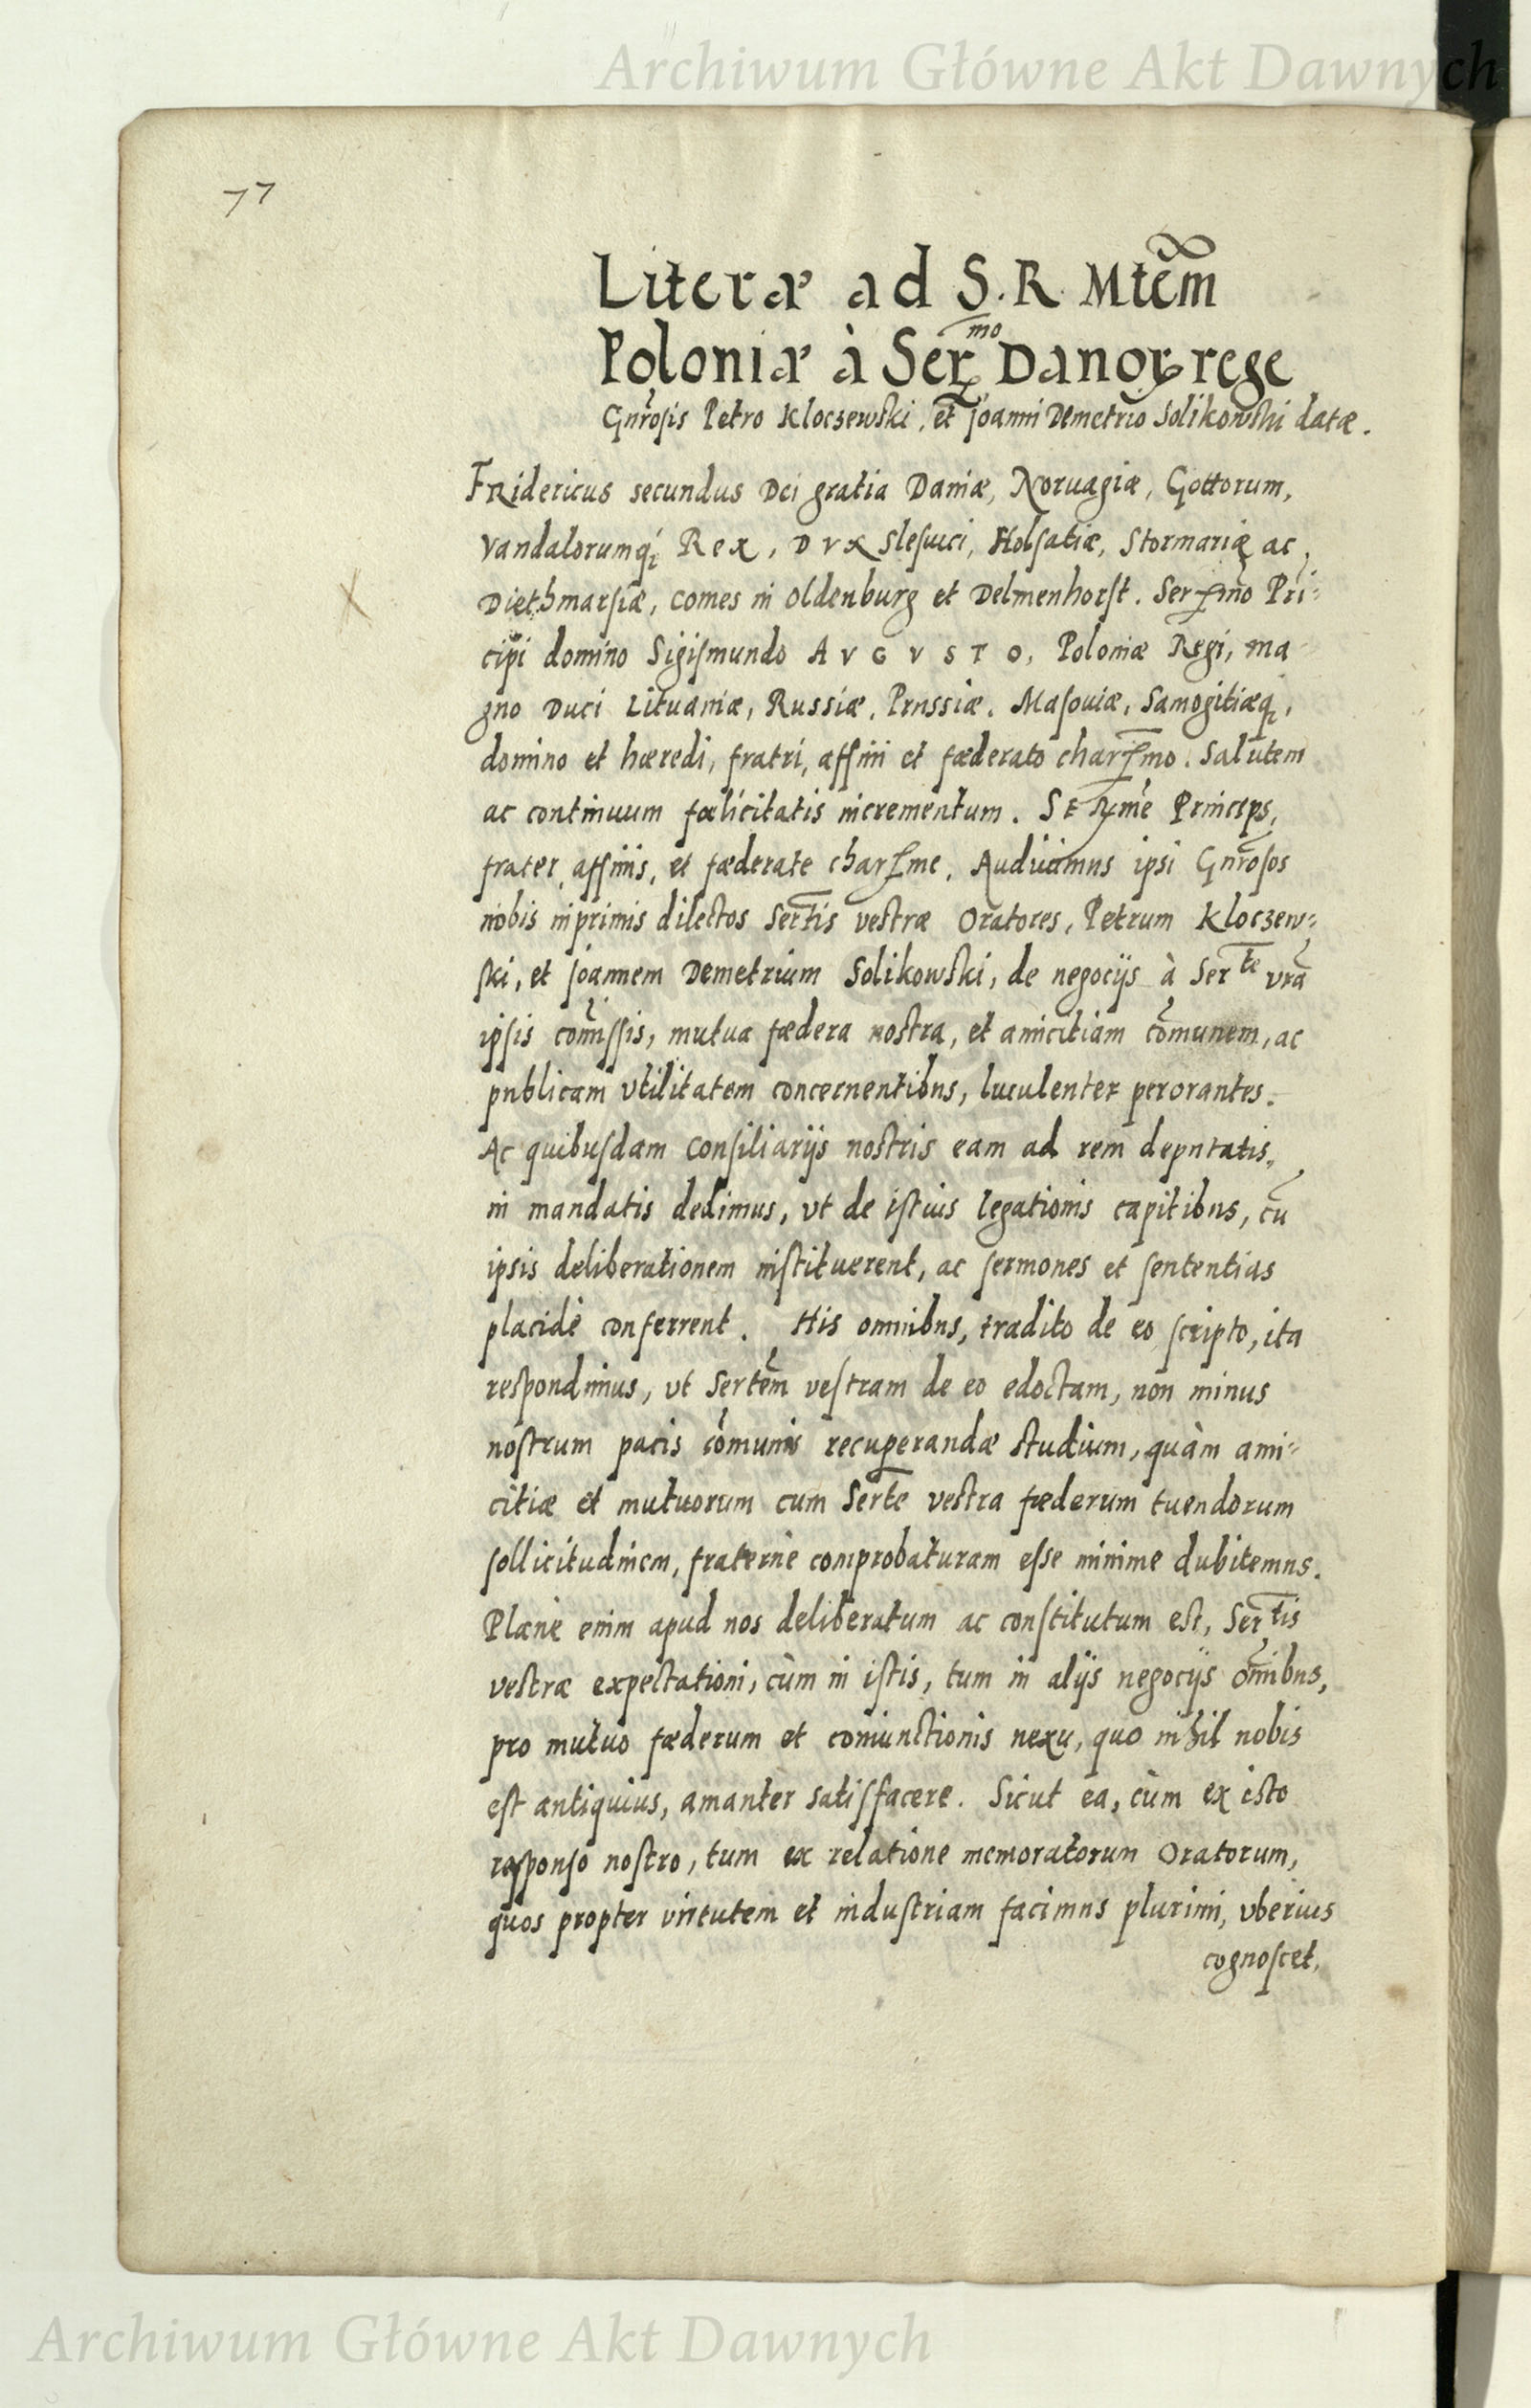 Archiwum Główne Akt Dawnych
77
Literæ ad S. R. Mtem̃
Poloniæ à Ser^mo Danoꝝ rege
Gnr̃osis Petro Kloczewski, et Joanni Demetrio Solikowski datæ.
Fridericus secundus Dei gratia Daniæ, Noruagiæ, Gottorum,
Vandalorumq; Rex, Dvx Slesuici, Holsatiæ, Stormariæ ac
Diethmarsiæ, Comes in Oldenburg et Delmenhorst. Serꝰmo Pri-
cipi domino Sigismundo AVGVSTO, Poloniæ Regi, ma
gno Duci Lituaniæ, Russiæ, Prussiæ, Masouiæ, Samogitiæq;,
domino et hæredi, fratri, affini et fæderato charꝰmo. Salutem
ac continuum fœlicitatis incrementum. Serꝰme Princeps,
frater, affinis, et fæderate charꝰme, Audiuimus ipsi Gnr̃osos
nobis inprimis dilectos Sertis̃ vestræ Oratores, Petrum Kloczew-
ski, et Joannem Demetrium Solikowski, de negocijs à Ser^te vrã
ipsis com̃issis, mutua fædera nostra, et amicitiam com̃unem, ac
publicam vtilitatem concernentibus, luculenter perorantes.
Ac quibusdam Consiliarijs nostris eam ad rem deputatis,
in mandatis dedimus, vt de istius legationis capitibus, cũ
ipsis deliberationem instituerent, ac sermones et sententias
placidè conferrent. His omnibus, tradito de eo scripto, ita
respondimus, vt Sertem̃ vestram de eo edoctam, non minus
nostrum pacis com̃unis recuperandæ studium, quàm ami-
citiæ et mutuorum cum Serte vestra fæderum tuendorum
sollicitudinem, fraternè comprobaturam esse minime dubitemus.
Planè enim apud nos deliberatum ac constitutum est, Ser^tis
vestræ expectationi, cùm in istis, tum in alijs negocijs om̃ibus,
pro mutuo fæderum et coniunctionis nexu, quo nihil nobis
est antiquius, amanter satisfacere. Sicut ea, cùm ex isto
responso nostro, tum ex relatione memoratorum Oratorum,
quos propter virtutem et industriam facimus plurimi, vberius
cognoscet,
Archiwum Główne Akt Dawnych